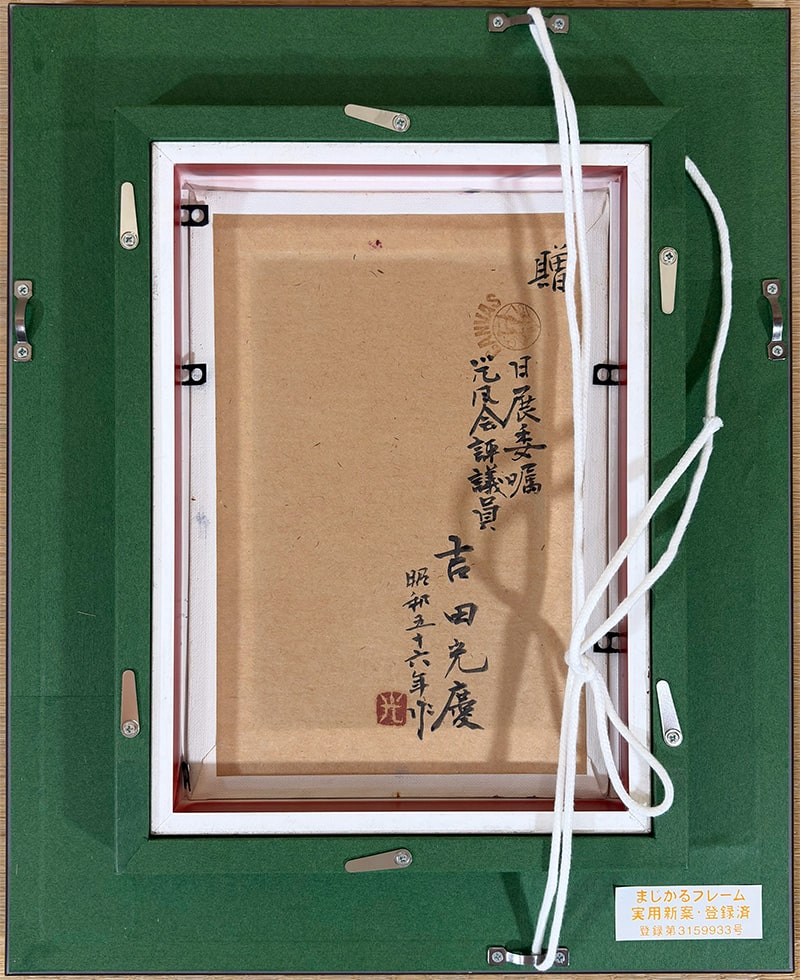 贈
日展委嘱
光風会評議員
吉田光慶
昭和五十六年作
光
CANVAS
まじかるフレーム
実用新案・登録済
登録第3159933号